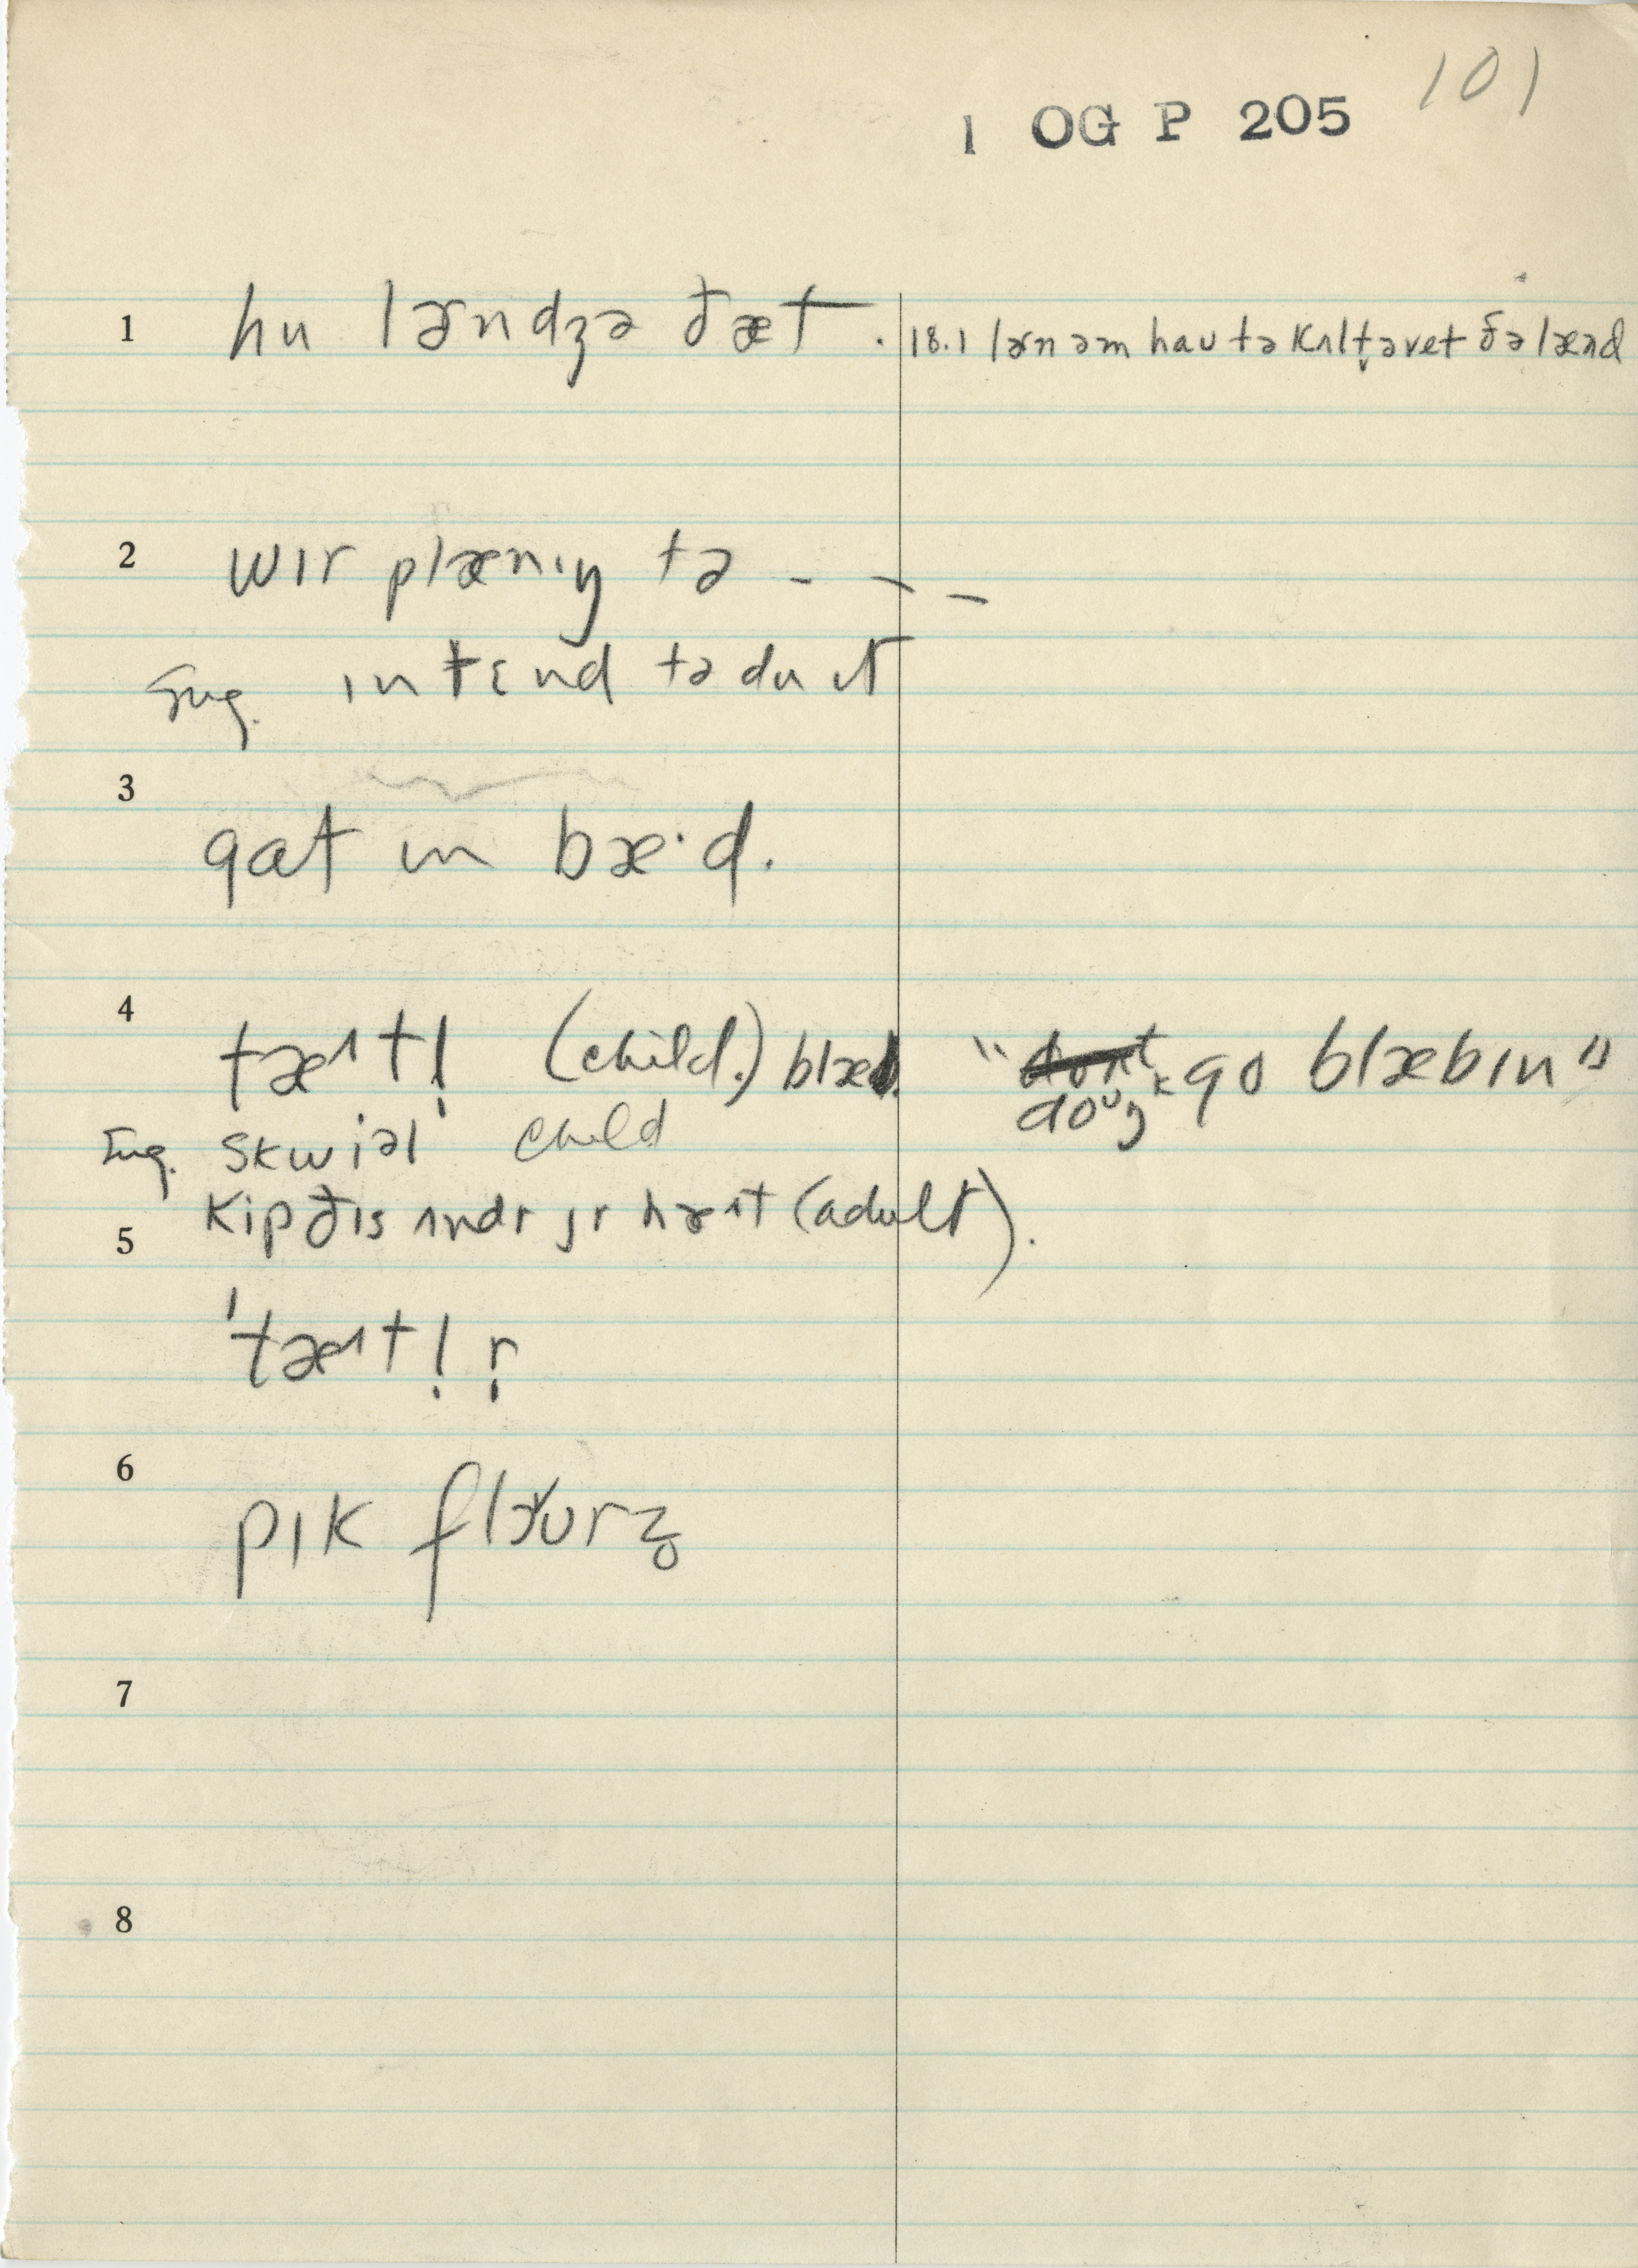 101
1 OG P 205
1 hu lɚndʒə ðæt . 18.1 lɚn əm haʊ tə kʌltəvet ðə lænd
2 wɪr plænɪŋ tə - - -
Sug. ɪntɛnd tə du ɪt
3 gat ɪn bæ·d.
4 tæɪt! (child.) blæb. "dont doʊŋk go blæbɪn"
Sug. skwiəl child
kip ðɪs ʌndr jr hæt (adult).
5
'tæɪt! r
6 pɪk flaʊrz
7
8